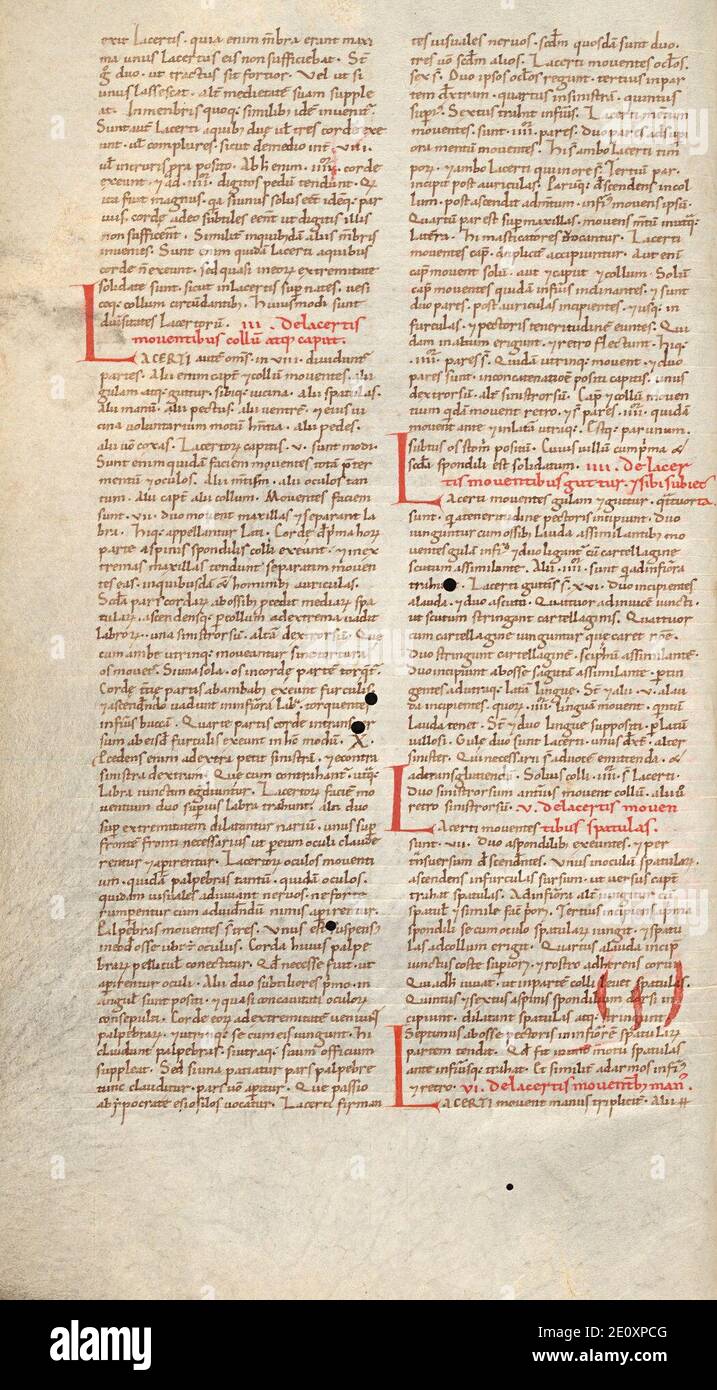 exit Lacertis. quia enim
ma unius Lacertus eis non sufficiebat. S
duo. ut tractus sit fortior. Vel ut si
unus Lassescat. alt medietate suam supple
at. In membris quoq; similib; idem
Sunt aut Lacerti a quib; due ul tres corde exe
unt. ul complures. sicut de medio
posito. Ab h enim. iiii. corde
exeunt. et ad. iiii. digitos pedum tendunt.
ita fuit magnus. qa si unus solus eet ideoq; par
uus. corde adeo subtiles eent ut digitis illis
non sufficerent. Similit in quibdam aliis mbris
inuenies. Sunt enim quidam Lacerti a quibus
corde n exeunt. sed quasi in eorum extremitate
solidate sunt. sicut in lacertis
collum circumdantib;. Huiusmodi sunt
diuersitates Lacertorum. iii. de lacertis
mouentibus collum atq; caput.
LACERTI aute omes in viii. diuidunt
partes. Alii enim capt et collum mouentes. alii
gulam atq; guttur. sibiq; uicina. alii spatulas.
Alii manum. alii pectus. alii uentre. et eius ui
cina uoluntarium motum. Alii pedes.
alii uo coxas. Lacertorum capitis. v. sunt modi.
Sunt enim quidam faciem mouentes totam pter
mentum et oculos. Alii mtum. alii oculos tan
tum. Alii capt alii collum. Mouentes faciem
sunt. vii. duo mouent maxillas et separant La
bra. Hiq; appellantur Lati. Corde prima horum
parte a spinis spondilis colli exeunt. et in ex
tremas maxillas tendunt separatim mouen
tes eas. in quibusdam hominibus auriculas.
Scda pars cordarum ab ossib; pcedit mediarum spa
tularum. ascendensq; p collum ad extrema uadit
Labrorum. una sinistrorsum. altam dextrorsum. Que
cum ambe utrinq; moueantur sine tortura
os mouet. Si una sola. os in corde parte torqt.
Corde tcie partis ab ambabus exeunt furculis
et ascendendo uadunt in inferiora Lab. torquentes
inferius buccam. Quarte partis corde in transuer
sum ab eisdem furculis exeunt in hc modum. X.
Pcedens enim a dextra petit sinistram. et econtra
sinistra dextram. Que cum contrahunt utriq;
Labra iunctim egdiuntur. Lacertorum faciem mo
uentium duo superius labra trahunt. alii duo
sup extremitatem dilatantur narium. unus sup
fronte fronti necessarius ut p eum oculi claude
rentur et apirentur. Lacertorum oculos mouenti
um. quidam palpebras tantum. quidam oculos.
quidam uisuales adiuuant neruos. ne forte
rumpentur cum ad uidendum nimis apirentur.
Palpebras mouentes st res. Unus est suspensus
in eodem osse ubi oculus. Corda huius palpe
brarum pelliculam conectitur. Qd necesse fuit. ut
apirentur oculi. Alii duo subtiliores primo. in
angul sunt positi. et quasi concauitati oculorum
consepulti. Corde eorum ad extremitate uenius
palpebrarum. et utriq; se cum eis iungunt. Hi
claudunt palpebras. si utraq; suum officium
suppleat. Sed si una patiatur pars palpebre
tunc clauditur. pars uo apitur. Que passio
ab ypocrate esiosilos uocatur. Lacerti firman
tes uisuales neruos. scdm quosdam sunt duo.
tres uo scdm alios. Lacerti mouentes oclos.
sex s. Duo ipsos oclos regunt. tertius in par
tem dextram. quartus in sinistram. quintus
sup. Sextus trahit infius. Lacerti mentum
mouentes. sunt. iiii. pares. Duo pares ad supi
ora mentum mouentes. His ambo Lacerti tim
porum. et ambo Lacerti quinores. Tertium par
incipit post auriculas. Paruq; descendens in col
lum. post ascendit ad mentum. infius mouens ipsum.
Quartum par est sup maxillas. mouens mtum in utrq;
Latera. Hi masticatores uocantur. Lacerti
mouentes cap. dupliciter accipiuntur. Aut eni
cap mouent solum. aut et caput et collum. Solum
cap mouentes quidam infius inclinantes. et sunt
duo pares. post auriculas incipientes. et usq; in
furculas. et pectoris teneritudine euntes. Qui
dam in altum erigunt. et retro flectunt. Hiq;
iiii. pares s. Quidam utrinq; mouent. et duo
pares sunt. in concatenatione positi capitis. unus
dextrorsum. alt sinistrorsum. Cap et collum mouen
tium quidam mouent retro. et s pares. iiii. quidam
mouent ante et in latum utrq;. Estq; par unum.
subtus os stom positum. Cuius uillum cum prima et
scda spondili est solidatum. iiii. de lacer
tis mouentibus guttur. et sibi subiec
Lacerti mouentes gulam et guttur. quattuor ta
sunt. qa teneritudine pectoris incipiunt. Duo
iunguntur cum ossib; Lauda assimilantib; mo
uentes gulam infius et duo ligant cum cartellagine
scutum assimilante. Alii. iiii. sunt qa dinfiora
trahunt. Lacerti gutturis s. xvi. Duo incipientes
a lauda. et duo a scuto. Quattuor ad inuice iuncti.
ut scutum stringant cartellaginis. Quattuor
cum cartellagine iunguntur que caret noe.
Duo stringunt cartellagine. sciphum assimilante.
Duo incipiunt ab osse sagittam assimilante. ptin
gentes ad utrumq; latum lingue. St et alii. v. a lau
da incipientes. quorum. iiii. linguam mouent. quintum
Lauda tenet. St et duo lingue suppositi. p latum
uillosi. Gule duo sunt Lacerti. unus dext. alter
sinister. Qui necessarii s ad uoce emittenda. et
ad transglutiendum. Solius colli. iiii. s Lacerti.
Duo sinistrorsum antius mouent collum. alii
retro sinistrorsum. v. de lacertis mouen
Lacerti mouentes tibus spatulas.
sunt. vii. Duo a spondilib; exeuntes. et per
insuersum descendentes. Unus in oculum spatularum.
ascendens in furculas sursum. ut uersus capet
trahat spatulas. Ad inferiora alt iungitur cum
spatul. et simile fini pori. Tertius incipiens a prima
spondili se cum oculo spatularum iungit. et spatu
las ad collum erigit. Quartus a lauda incip
iunctus coste supiori. et rostro adherens corui
Qua adh iuuat. ut in parte colli leuet spatulas.
Quintus et sextus a spinis spondilium dorsi in
cipiunt. dilatant spatulas atq; stringunt.
Septimus ab osse pectoris in inferiore spatularum
partem tendit. Qd fit iuuante motu spatulas
ante infiusq; trahat. Et similit ad armos infius
et retro. vi. de lacertis mouentib; man
LACERTI mouent manus triplicit. Alii
alamy
Image ID: 2E0XPCG
www.alamy.com